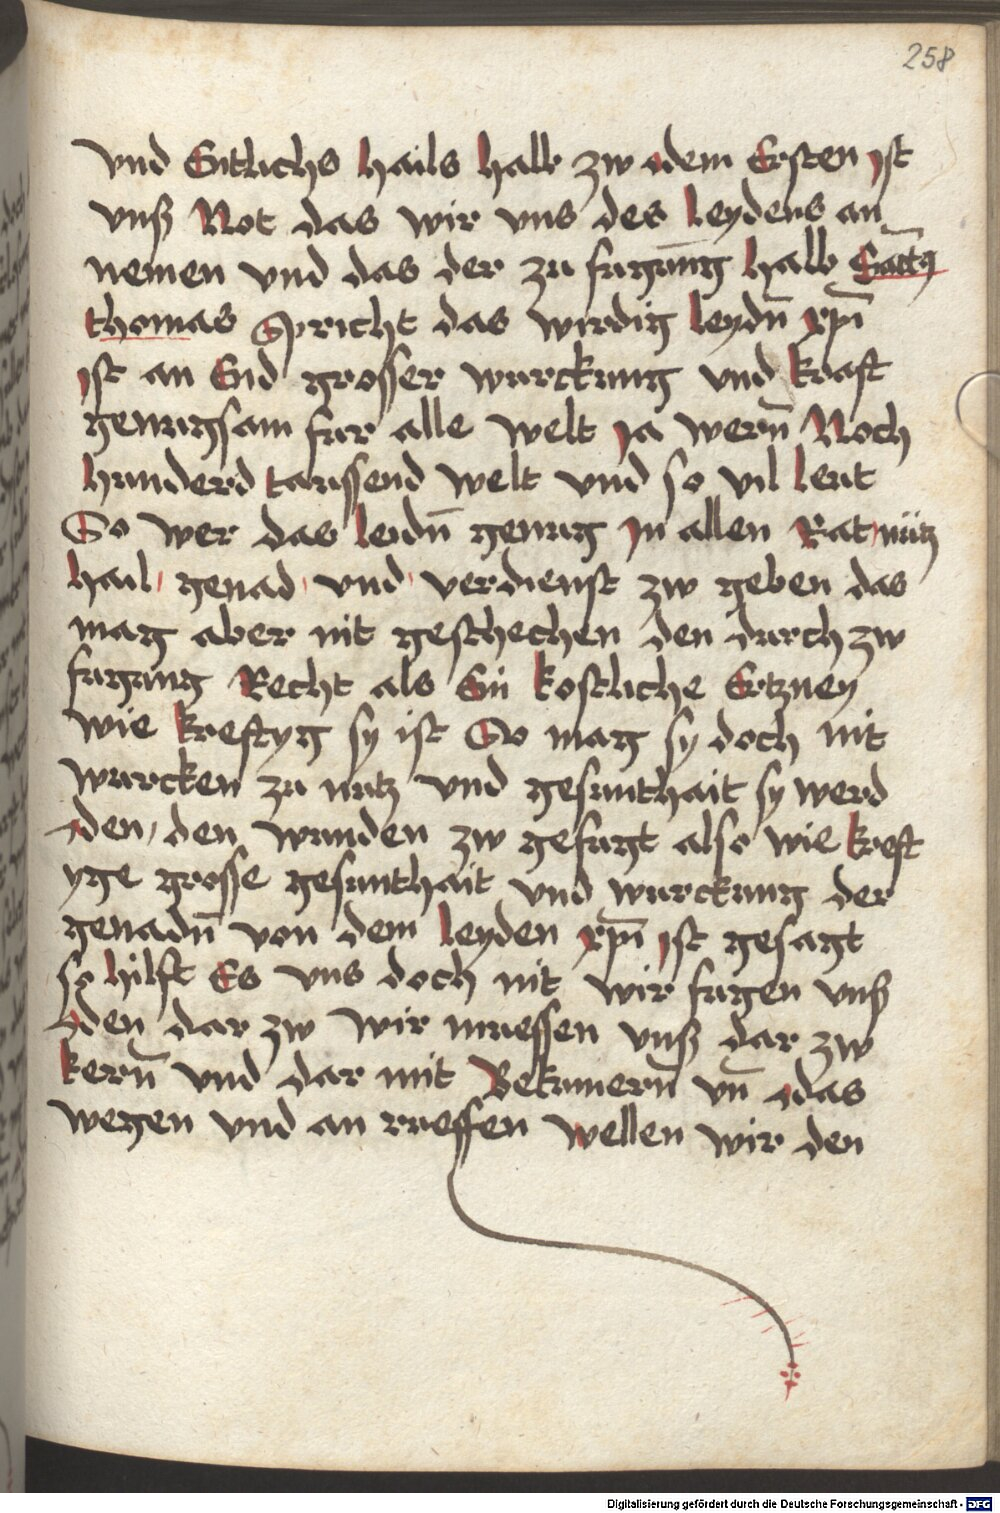 258
vnd Entlichs hails halb zw dem Ersten ist
vnß Not das wir vns des leydens an
nemen vnd das der zu fugung halb
thomas Spricht das wirdig leydn̄ xp̄i
ist an End grosser wurckung vnd kraft
genugsam fur alle welt Ja wern̄ Noch
hunderd taussend welt vnd so vil leut
So wer das leidn̄ genug In allen Rat nütz
hail genad vnd verdienst zw geben das
mag aber nit geschechen den durch zw
fugung Recht als Ein kostliche Ertzney
wie kreftyg sy ist So mag sy doch nit
wurcken zu nutz vnd gesunthait sy werd
den den wunden zw gefugt also wie kreft
yge grosse gesunthait vnd wurckung der
genadn̄ von dem leyden xp̄i ist gesagt
so hilft Es vns doch nit wir fugen vnß
den dar zw wir muessen vnß dar zw
kern̄ vnd dar mit Bekumern̄ vn̄ das
wegen vnd an rueffen wellen wir den
Digitalisierung gefördert durch die Deutsche Forschungsgemeinschaft - DFG